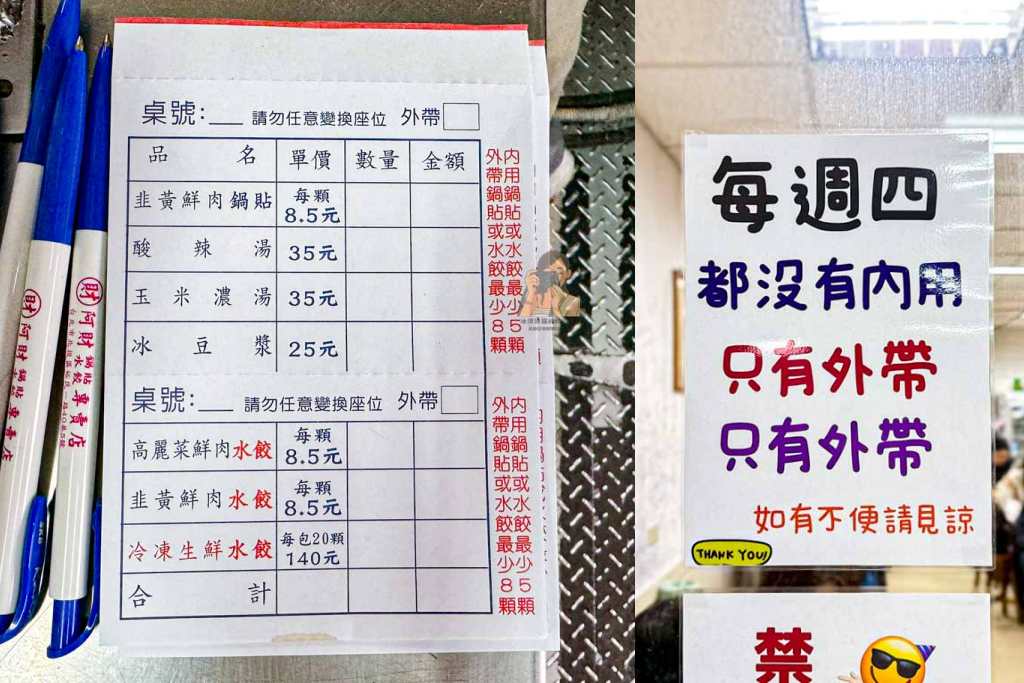 桌號:___ 請勿任意變換座位 外帶
品名 單價 數量 金額
韭黃鮮肉鍋貼 每顆 8.5元
酸辣湯 35元
玉米濃湯 35元
冰豆漿 25元
內用鍋貼或水餃最少5顆
外帶鍋貼或水餃最少8顆
桌號:___ 請勿任意變換座位 外帶
高麗菜鮮肉水餃 每顆 8.5元
韭黃鮮肉水餃 每顆 8.5元
冷凍生鮮水餃 每包20顆 140元
合計
內用鍋貼或水餃最少5顆
外帶鍋貼或水餃最少8顆
財 阿財 鍋貼水餃專賣店
財 阿財 鍋貼水餃專賣店
每週四
都没有內用
只有外帶
只有外帶
如有不便請見諒
THANK YOU!
禁